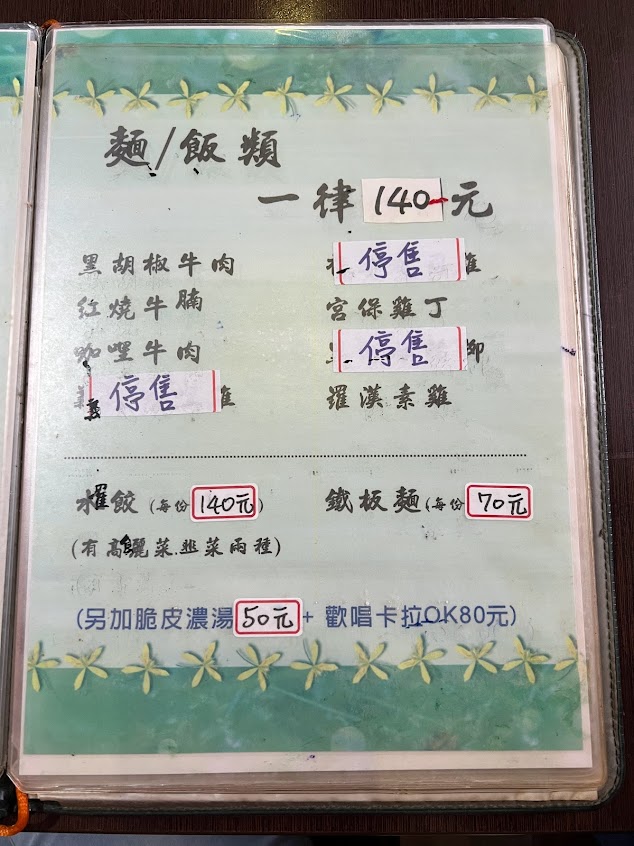 麵/飯類
一律140元
黑胡椒牛肉
停售
雞
紅燒牛腩
宮保雞丁
咖哩牛肉
停售
柳
停售
雞
羅漢素雞
水餃(每份140元)
鐵板麵(每份70元
(有高麗菜.韭菜兩種)
(另加脆皮濃湯50元+ 歡唱卡拉OK80元)